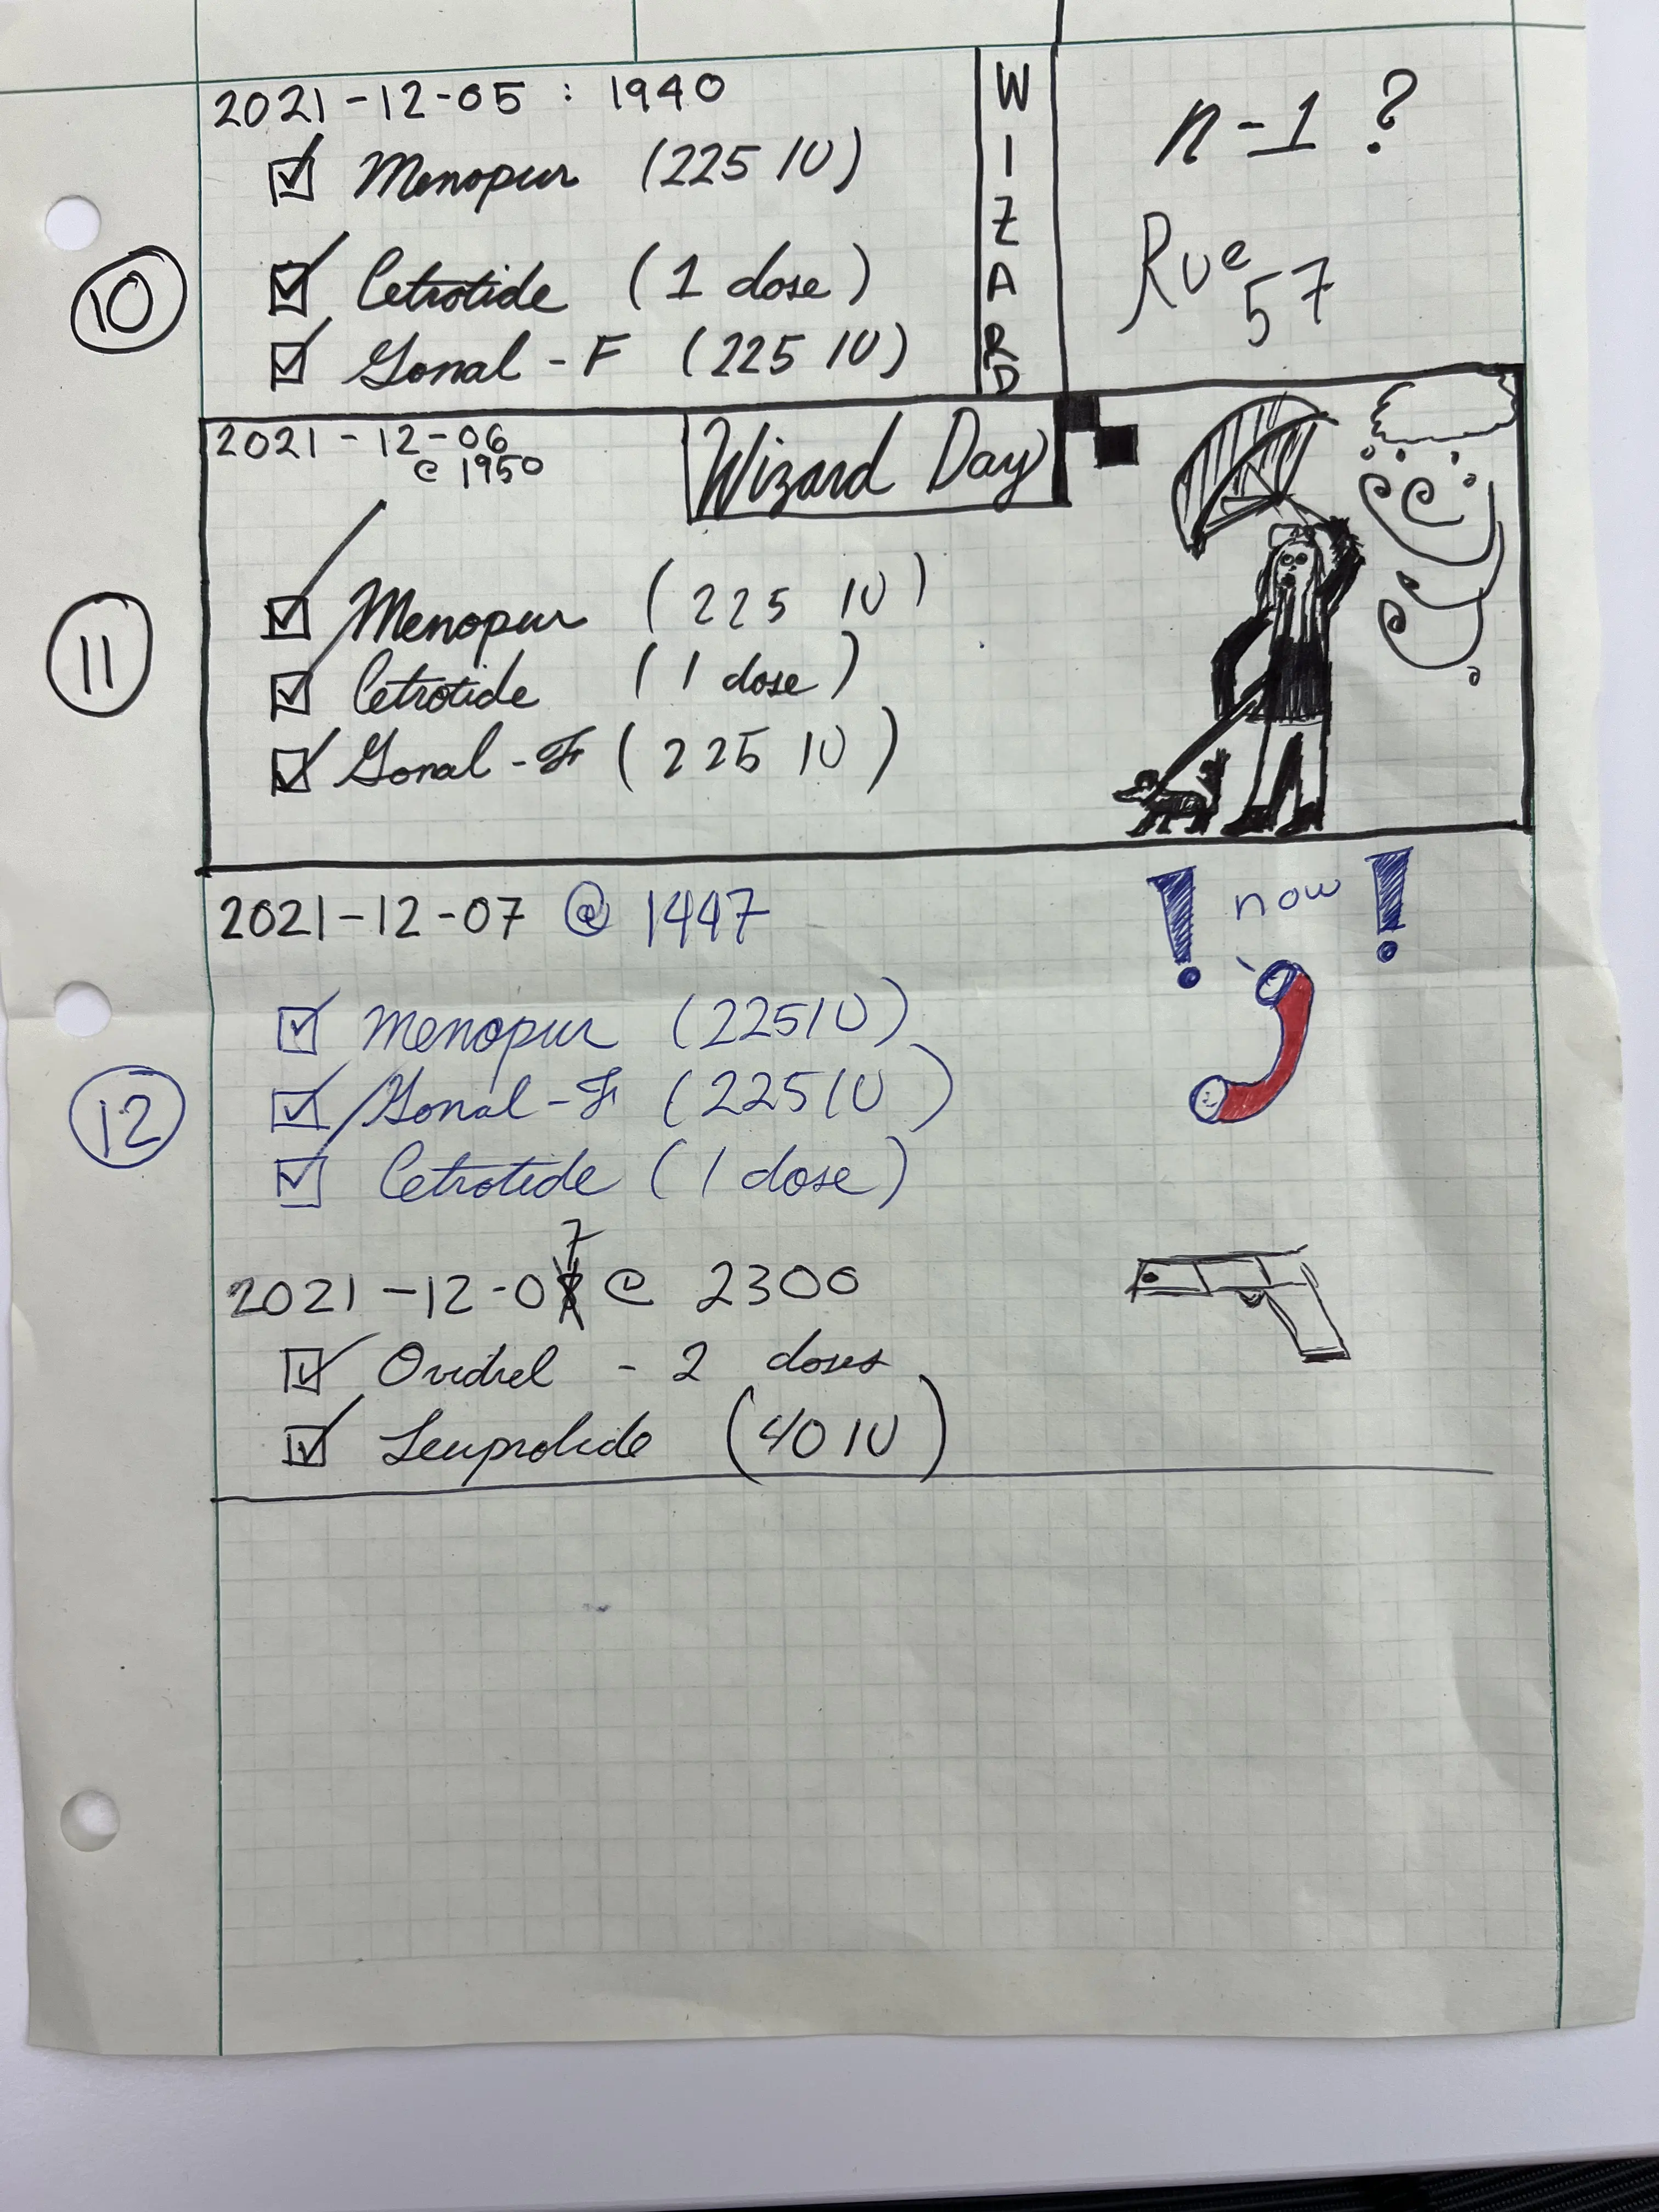 2021-12-05 : 1940
Menopur (225 IU)
10
Cetrotide (1 dose)
Gonal-F (225 IU)
WIZARD
n-1 ?
Rue 57
2021-12-06
@ 1950
Wizard Day
11
Menopur (225 IU)
Cetrotide (1 dose)
Gonal-F (225 IU)
2021-12-07 @ 1447
! now !
12
Menopur (225 IU)
Gonal-F (225 IU)
Cetrotide (1 dose)
2021-12-07 @ 2300
Ovidrel - 2 doses
Leuprolide (40 IU)